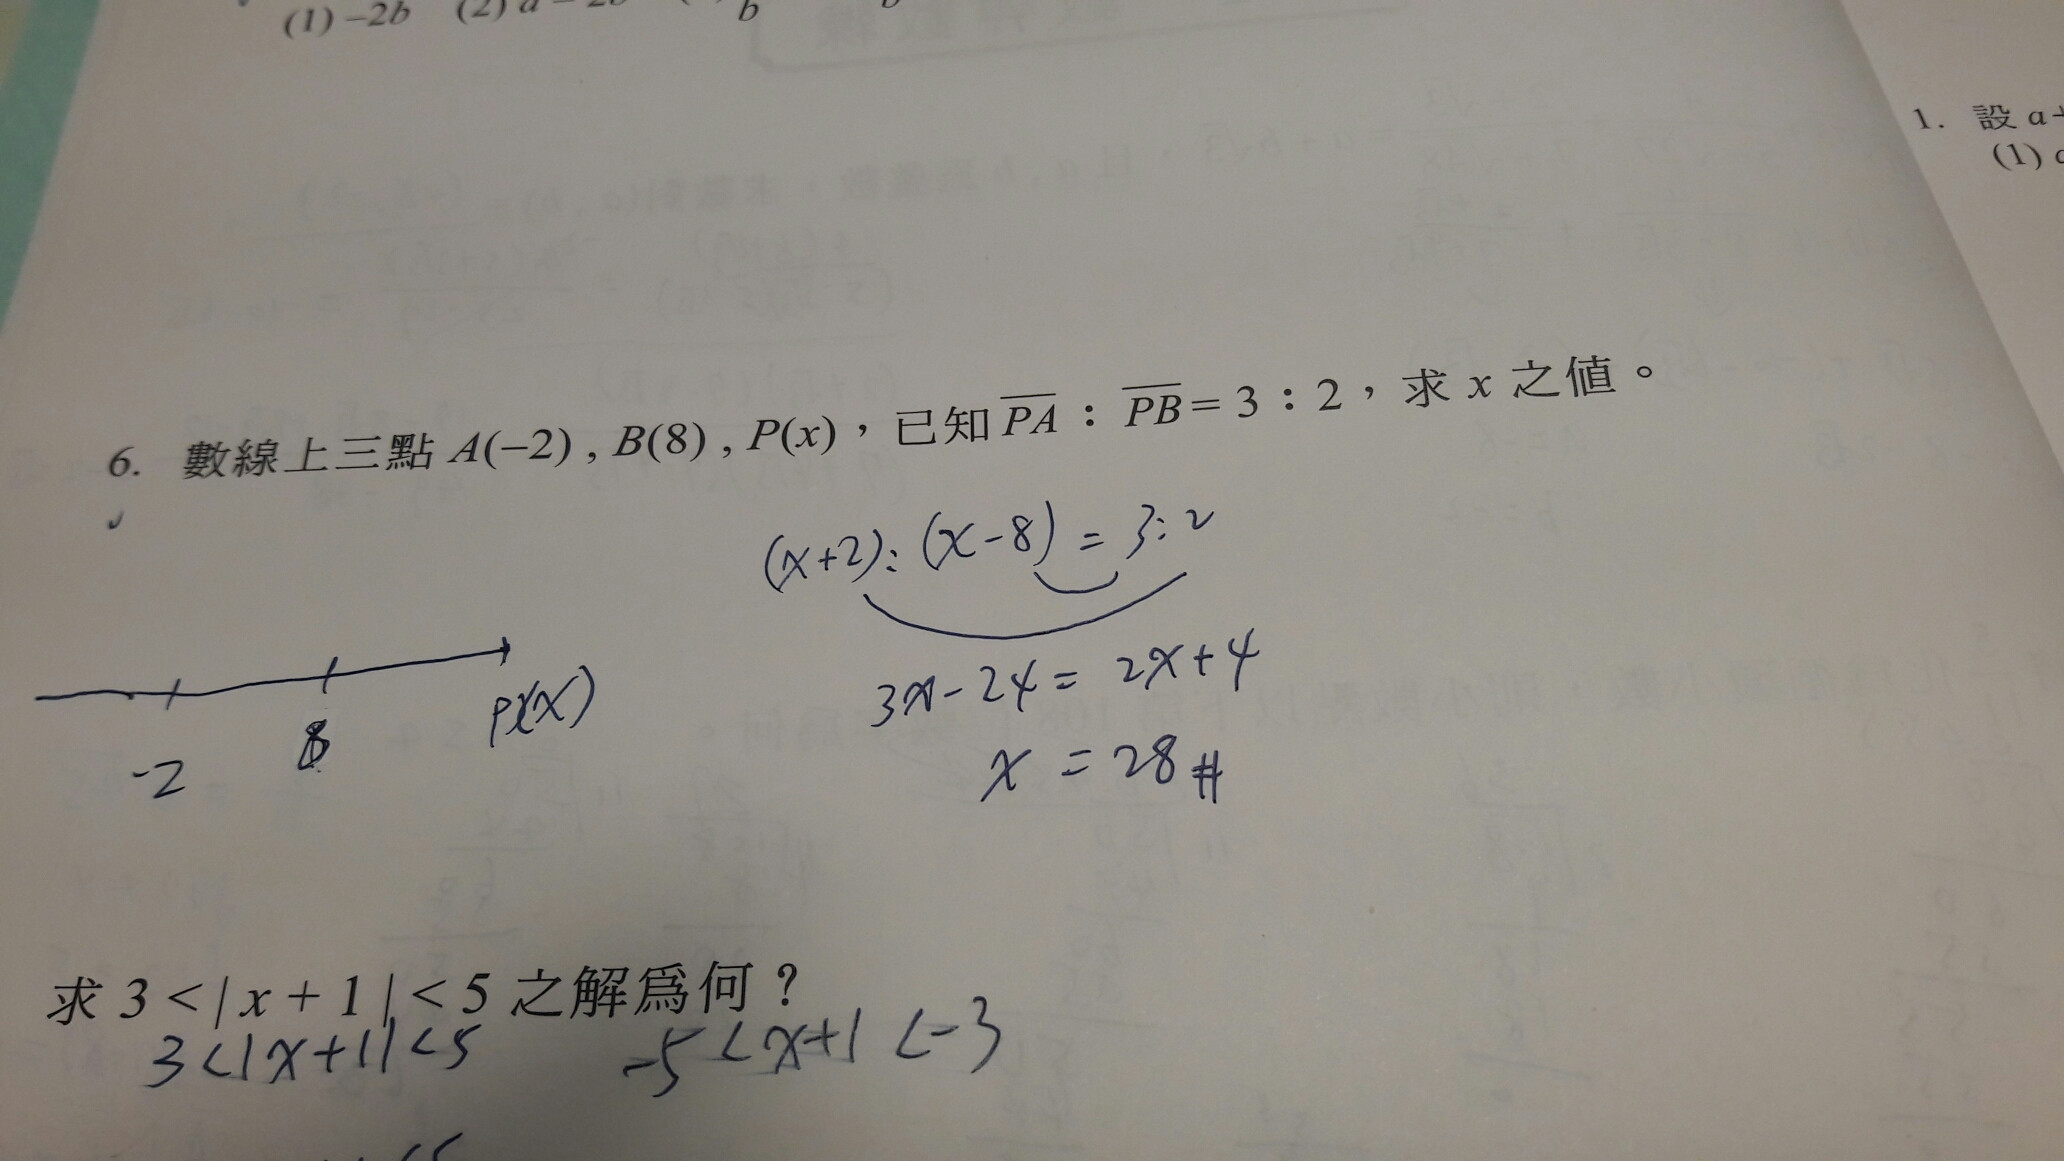 (1) –2b (2) a – 2b b
1. 設 a+
(1)
6. 數線上三點 A(−2) , B(8) , P(x)，已知 PA : PB = 3 : 2，求 x 之值。
(x+2):(x-8) = 3:2
3x-24 = 2x+4
x = 28 #
-2 8 P(x)
求 3 < | x + 1 | < 5 之解為何？
3<|x+1|<5 -5 < x+1 <-3
<5